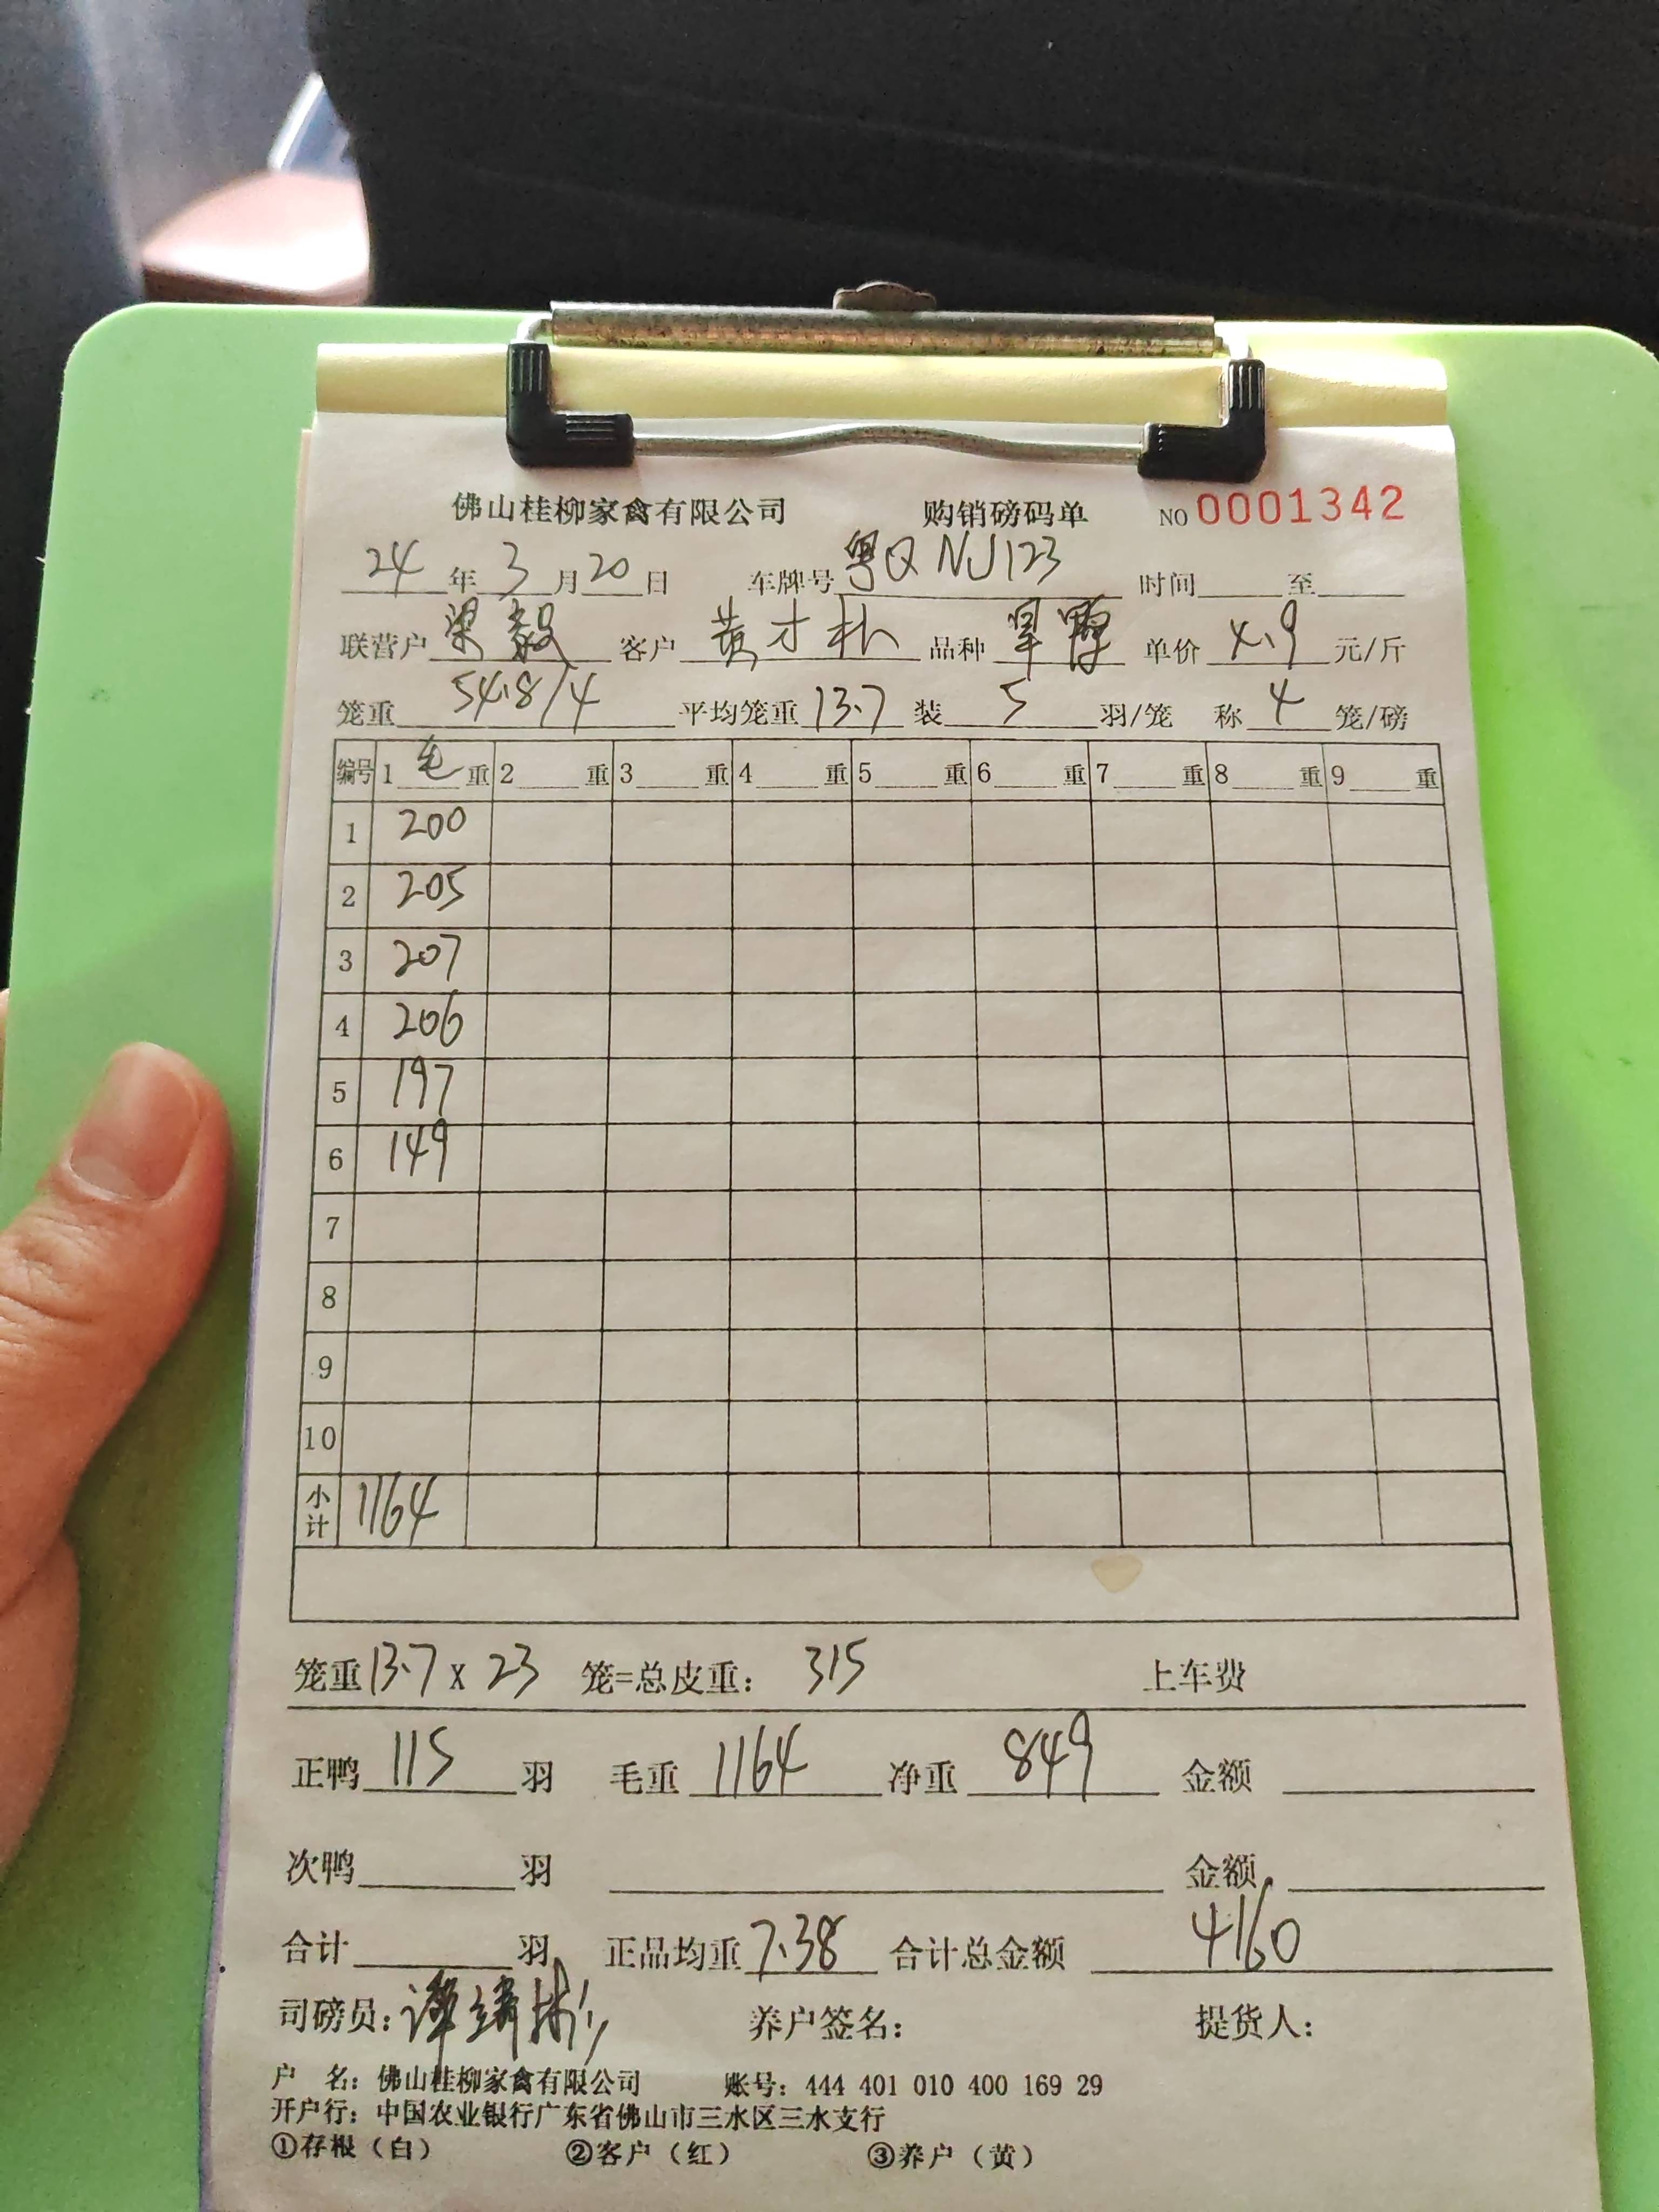 佛山桂柳家禽有限公司 购销磅码单 NO 0001342
24年3月20日 车牌号 粤Q NJ123 时间 至
联营户 梁毅 客户 黄才朴 品种 旱鸭 单价 4.9 元/斤
笼重 54.8/4 平均笼重 13.7 装 5 羽/笼 称 4 笼/磅
编号 1 毛 重 2 重 3 重 4 重 5 重 6 重 7 重 8 重 9 重
1 200
2 205
3 207
4 206
5 197
6 149
7
8
9
10
小计 1164
笼重 13.7 x 23 笼=总皮重: 315 上车费
正鸭 115 羽 毛重 1164 净重 849 金额
次鸭 羽 金额
合计 羽 正品均重 7.38 合计总金额 4160
司磅员: 谭 养户签名: 提货人:
户 名: 佛山桂柳家禽有限公司 账号: 444 401 010 400 169 29
开户行: 中国农业银行广东省佛山市三水区三水支行
①存根(白) ②客户(红) ③养户(黄)